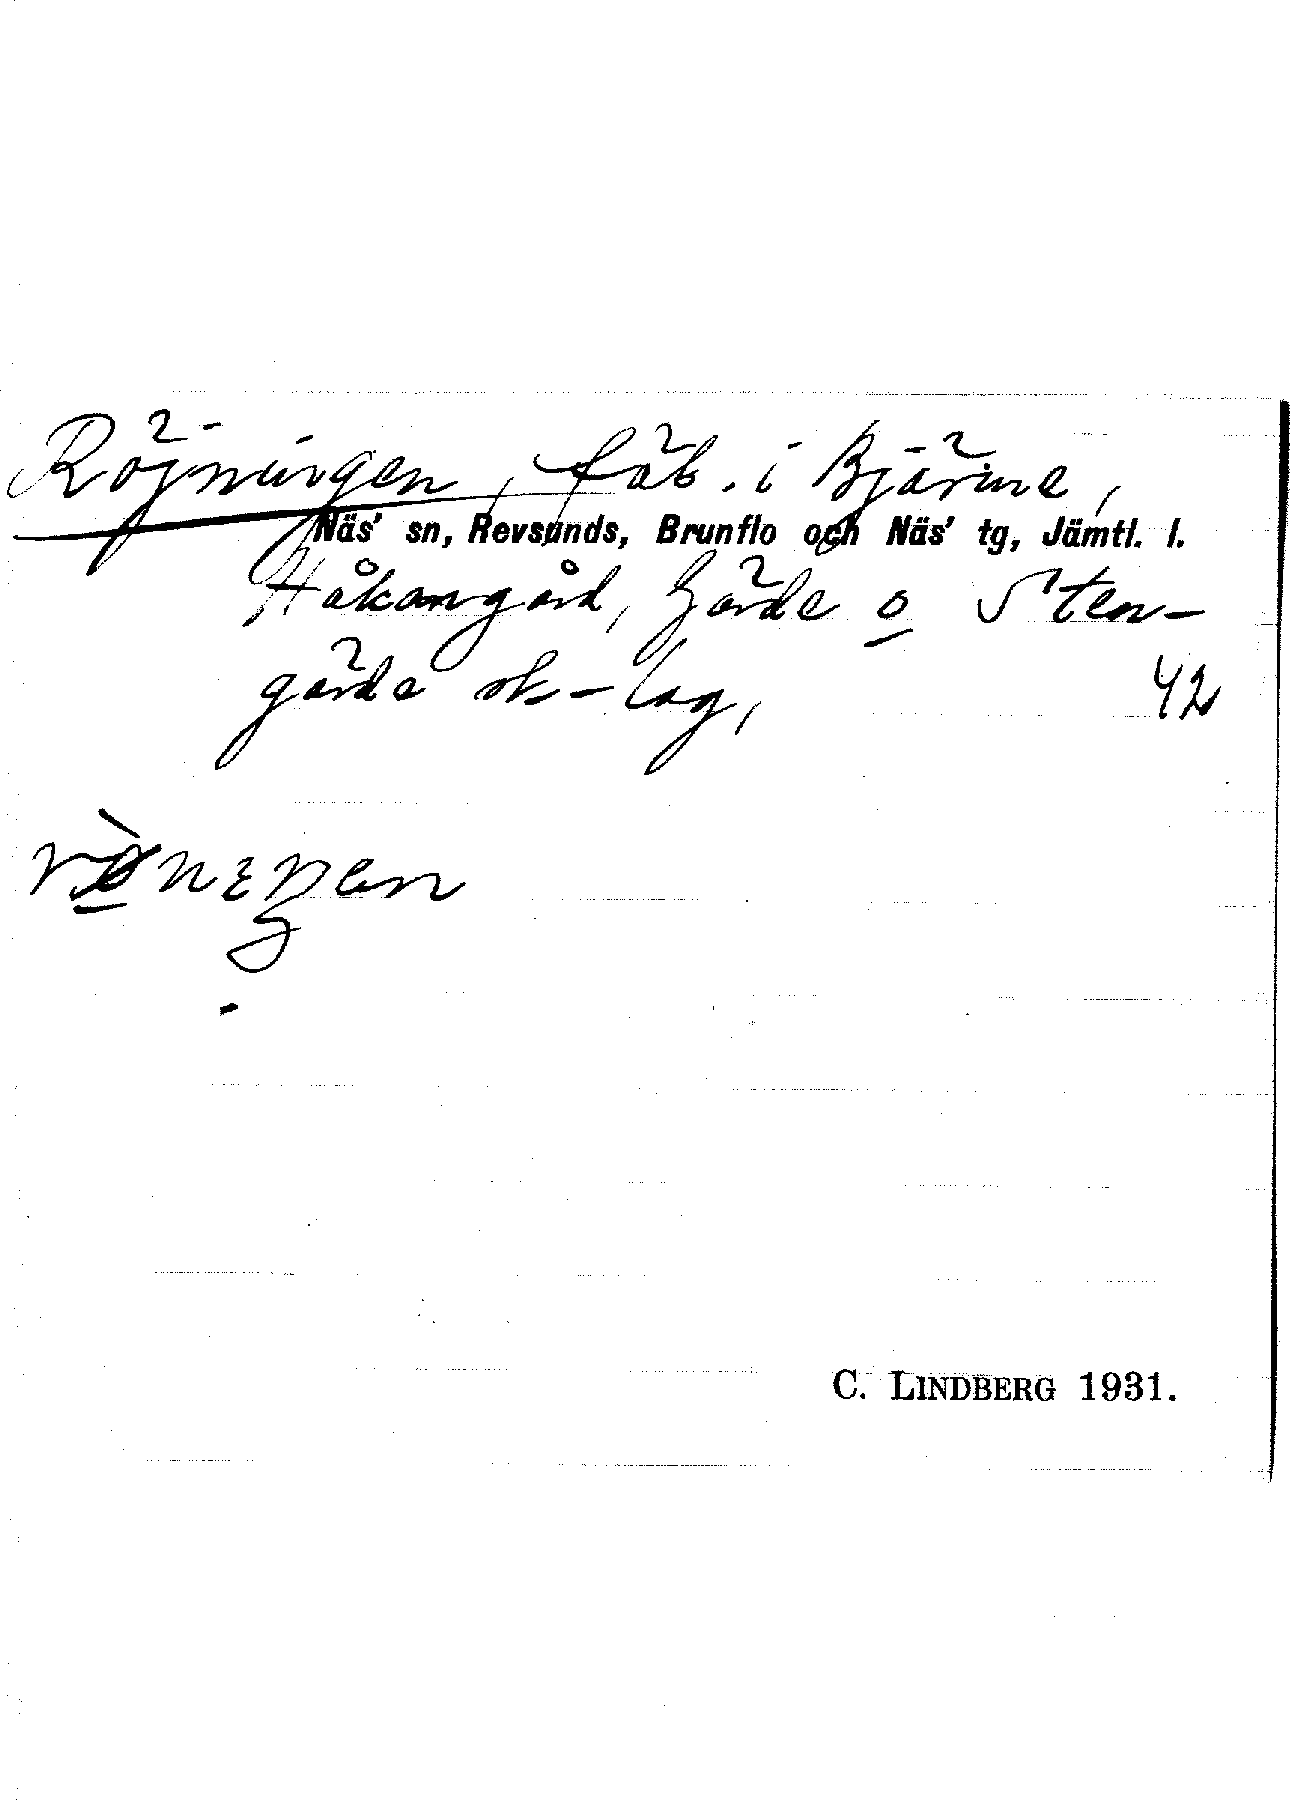 Röjningen, fäb. i Bjärme,
Näs' sn, Revsunds, Brunflo och Näs' tg, Jämtl. l.
Håkangård, Gärde o Sten-
gärde sk-lag,
42
C. LINDBERG 1931.